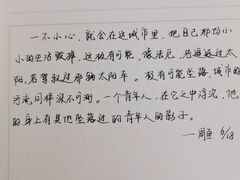 一不小心，就会在这城市里，把自己那份小
小的生活毁掉，这很有可能，像法厄，若逃过过太
阳，若驾驭过那辆太阳车。很有可能坠落，城市的
污流同样深不可测。一个青年人，在它之中浮沉，他
的身上有其他坠落过的青年人的影子。
6/18